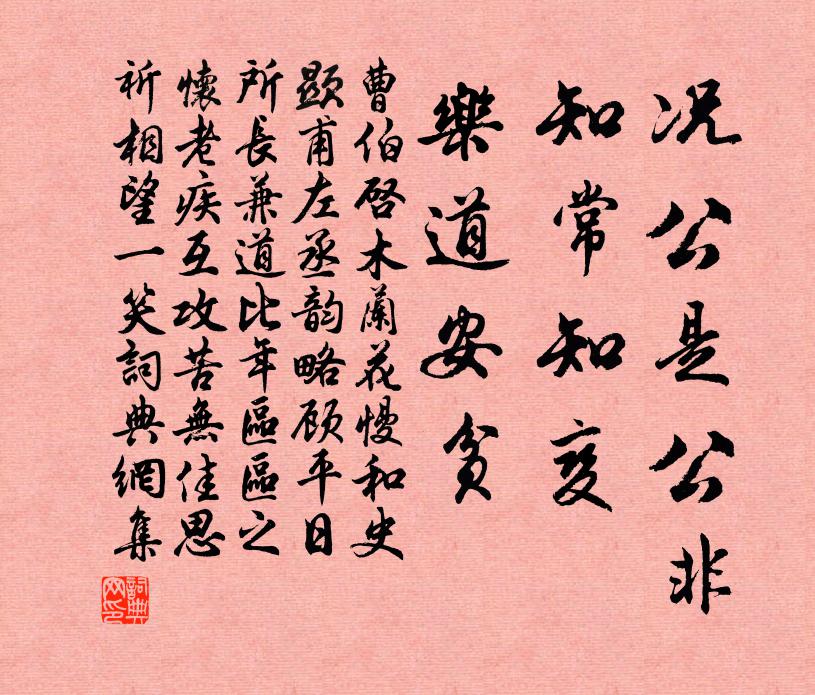 况公是公非
知常知变
樂道安贫
曹伯启木蘭花慢和史
顯甫左丞韵略顾平日
所長兼道比年區區之
懷老疾互攻苦無佳思
祈相望一笑詞典網集
詞典网印